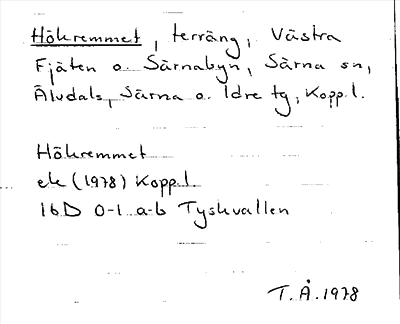 Hökremmet, terräng, Västra
Fjäten o. Särnabyn, Särna sn,
Älvdals, Särna o. Idre tg, Kopp.l.
Hökremmet
ek (1978) Kopp.l.
16D 0-1 a-b Tyskvallen
T.Å. 1978